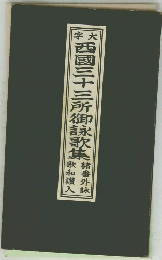 大字
西國三十三所御詠歌集
諸番外詠
歌和讃入